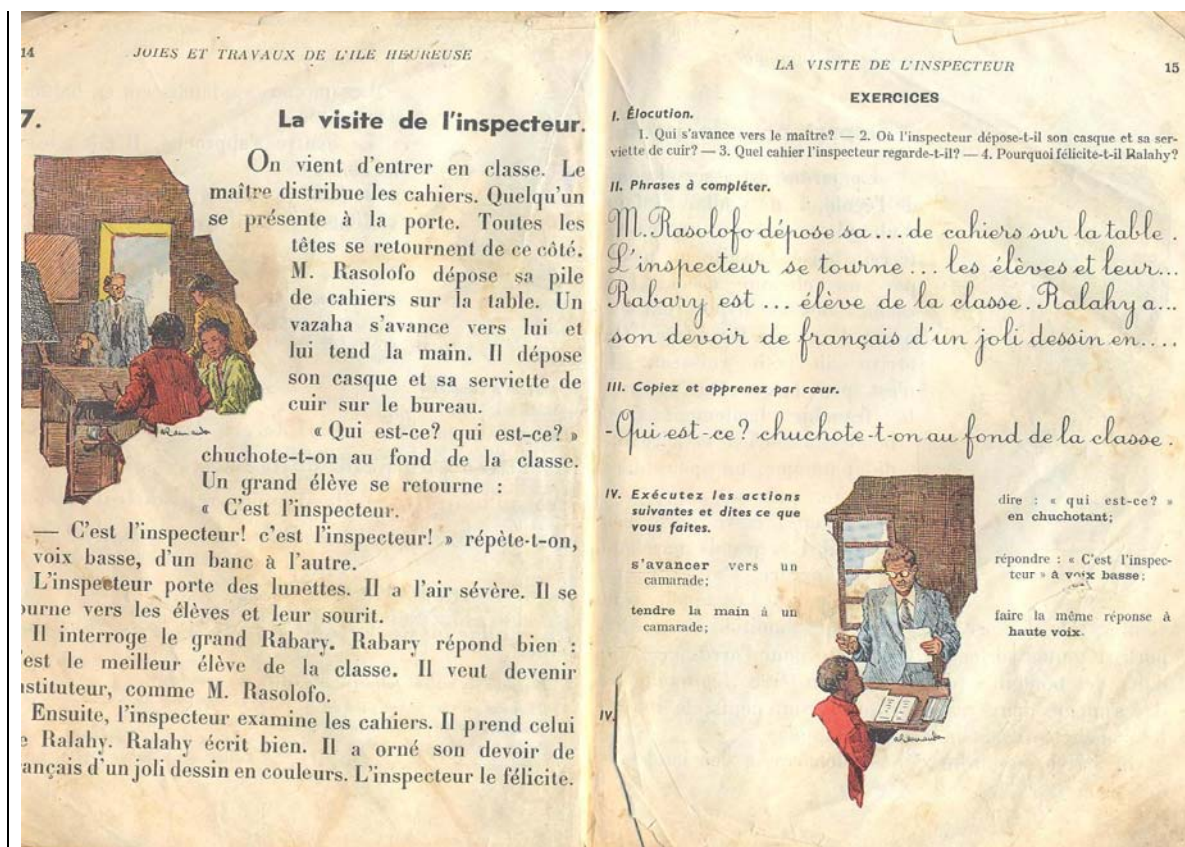 14 JOIES ET TRAVAUX DE L'ILE HEUREUSE
7. La visite de l'inspecteur.
On vient d'entrer en classe. Le
maître distribue les cahiers. Quelqu'un
se présente à la porte. Toutes les
têtes se retournent de ce côté.
M. Rasolofo dépose sa pile
de cahiers sur la table. Un
vazaha s'avance vers lui et
lui tend la main. Il dépose
son casque et sa serviette de
cuir sur le bureau.
« Qui est-ce? qui est-ce? »
chuchote-t-on au fond de la classe.
Un grand élève se retourne :
« C'est l'inspecteur.
— C'est l'inspecteur! c'est l'inspecteur! » répète-t-on,
voix basse, d'un banc à l'autre.
L'inspecteur porte des lunettes. Il a l'air sévère. Il se
ourne vers les élèves et leur sourit.
Il interroge le grand Rabary. Rabary répond bien :
'est le meilleur élève de la classe. Il veut devenir
nstituteur, comme M. Rasolofo.
Ensuite, l'inspecteur examine les cahiers. Il prend celui
e Ralahy. Ralahy écrit bien. Il a orné son devoir de
ançais d'un joli dessin en couleurs. L'inspecteur le félicite.
LA VISITE DE L'INSPECTEUR 15
EXERCICES
I. Élocution.
1. Qui s'avance vers le maître? — 2. Où l'inspecteur dépose-t-il son casque et sa ser-
viette de cuir? — 3. Quel cahier l'inspecteur regarde-t-il? — 4. Pourquoi félicite-t-il Ralahy?
II. Phrases à compléter.
M. Rasolofo dépose sa ... de cahiers sur la table.
L'inspecteur se tourne ... les élèves et leur...
Rabary est ... élève de la classe. Ralahy a...
son devoir de français d'un joli dessin en....
III. Copiez et apprenez par cœur.
-Qui est-ce? chuchote-t-on au fond de la classe.
IV. Exécutez les actions
suivantes et dites ce que
vous faites.
s'avancer vers un
camarade;
tendre la main à un
camarade;
dire : « qui est-ce? »
en chuchotant;
répondre : « C'est l'inspec-
teur » à voix basse;
faire la même réponse à
haute voix.
IV.